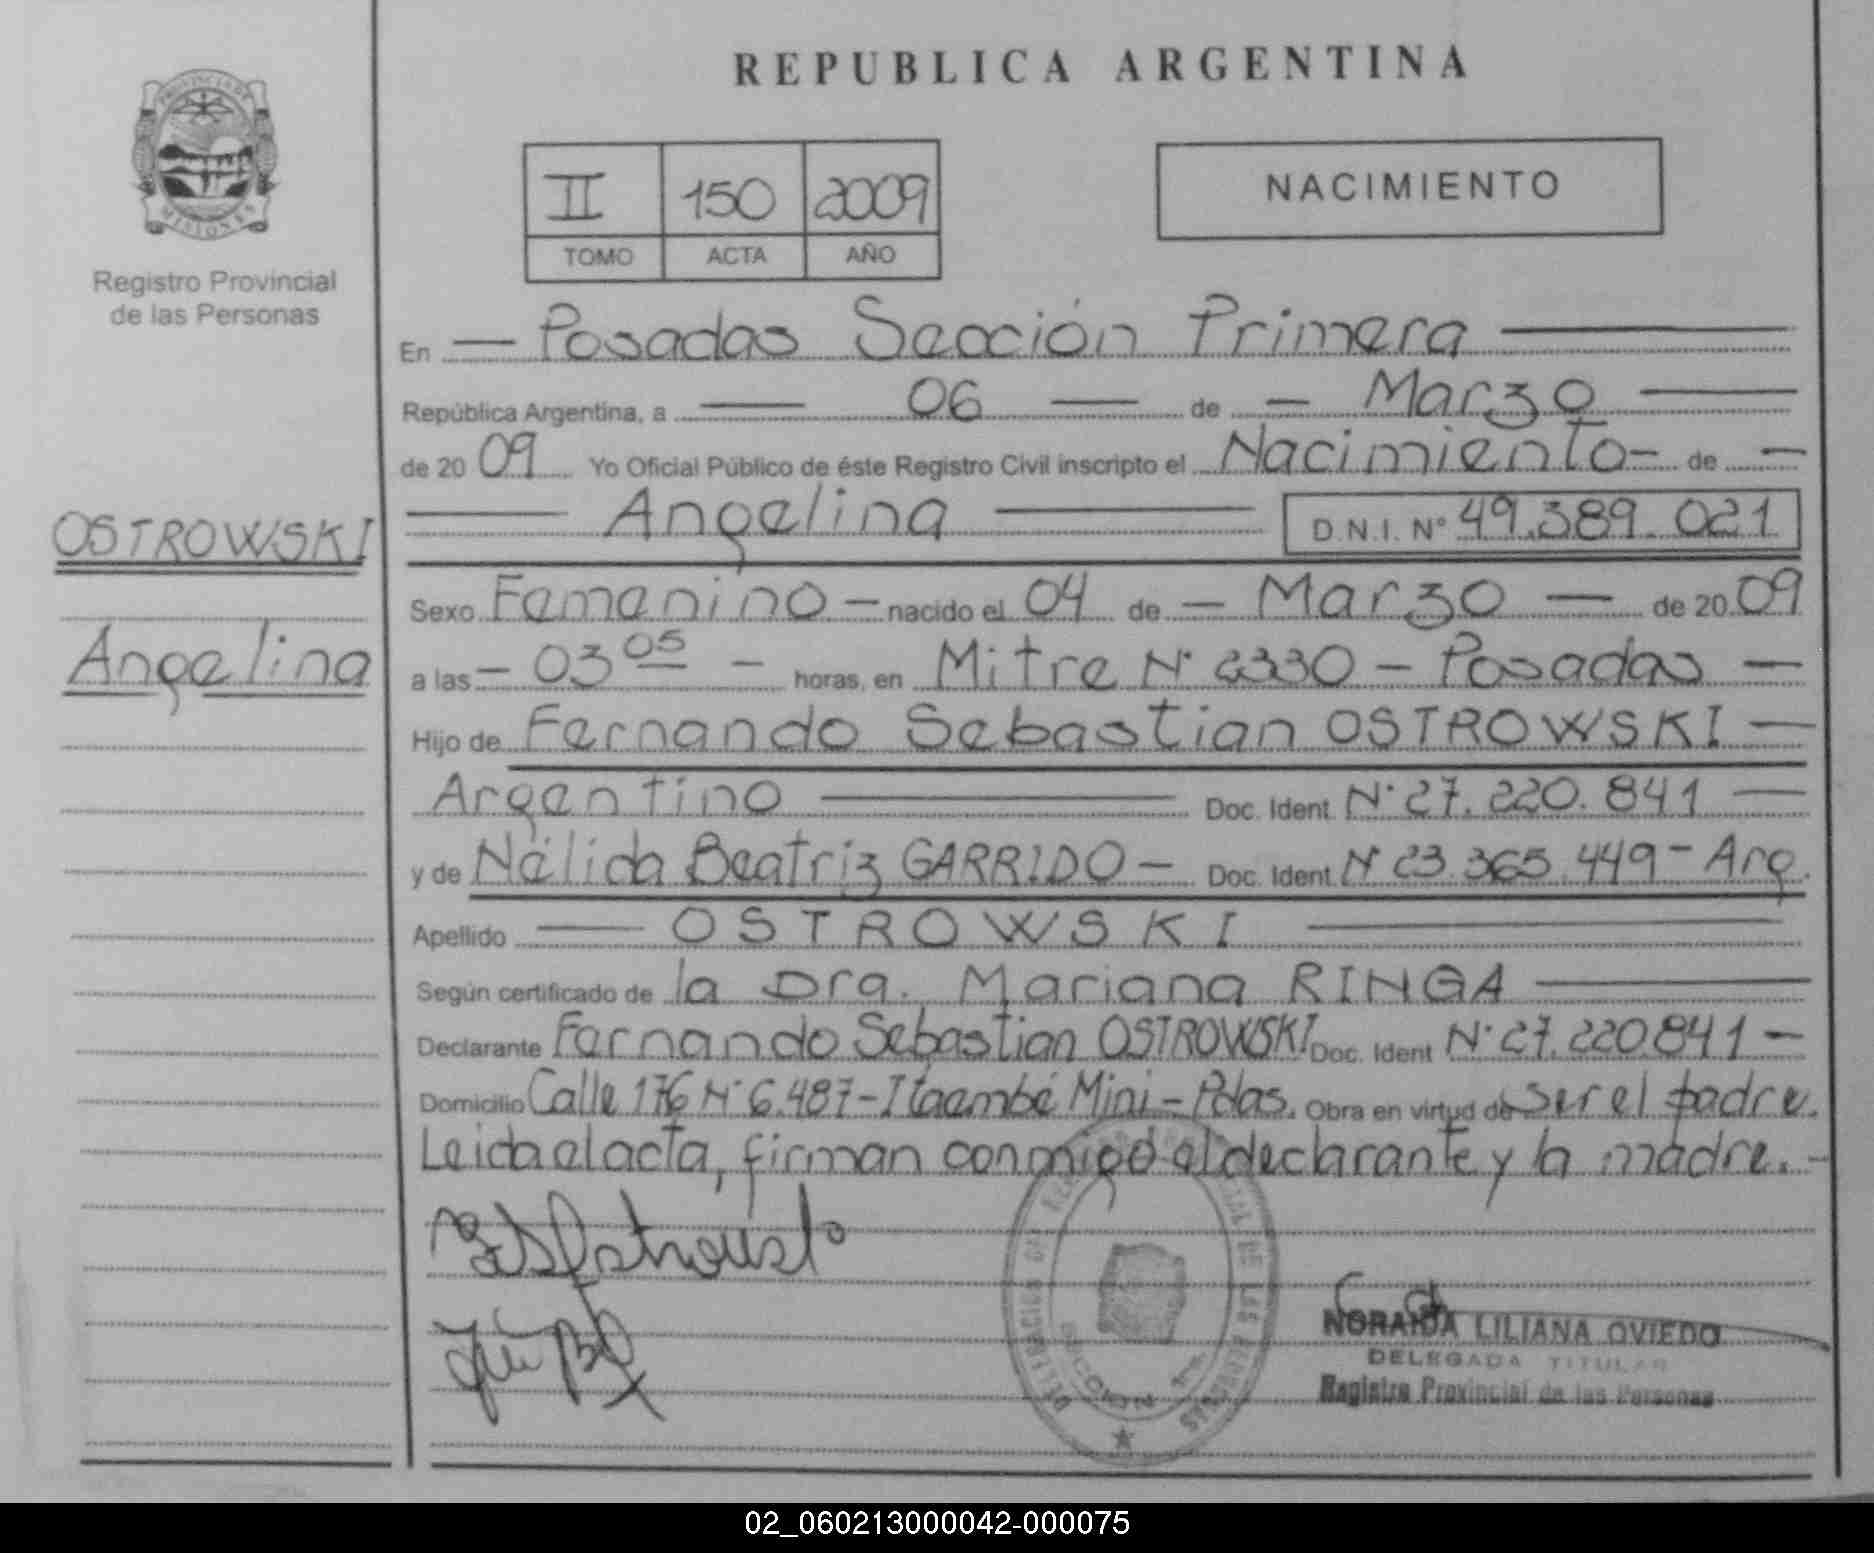 REPUBLICA ARGENTINA
PROVINCIA DE
MISIONES
Registro Provincial
de las Personas
II 150 2009
TOMO ACTA AÑO
NACIMIENTO
En — Posadas Sección Primera —
República Argentina, a — 06 — de — Marzo —
de 20 09 Yo Oficial Público de éste Registro Civil inscripto el Nacimiento - de —
— Angelina — D.N.I. Nº 49.389.021
OSTROWSKI
Angelina
Sexo Femenino — nacido el 04 de — Marzo — de 20 09
a las — 03 05 — horas, en Mitre Nº 2330 - Posadas —
Hijo de Fernando Sebastian OSTROWSKI —
Argentino — Doc. Ident. Nº 27.220.841 —
y de Nélida Beatriz GARRIDO — Doc. Ident. Nº 23.365.449 - Arg.
Apellido — OSTROWSKI —
Según certificado de la Dra. Mariana RINGA —
Declarante Fernando Sebastian OSTROWSKI Doc. Ident Nº 27.220.841 —
Domicilio Calle 176 Nº 6.487 - Itaembé Mini - Pdas. Obra en virtud de ser el padre.
Leida el acta, firman conmigo el declarante y la madre. -
NORAIDA LILIANA OVIEDO
DELEGADA TITULAR
Registro Provincial de las Personas
02_060213000042-000075